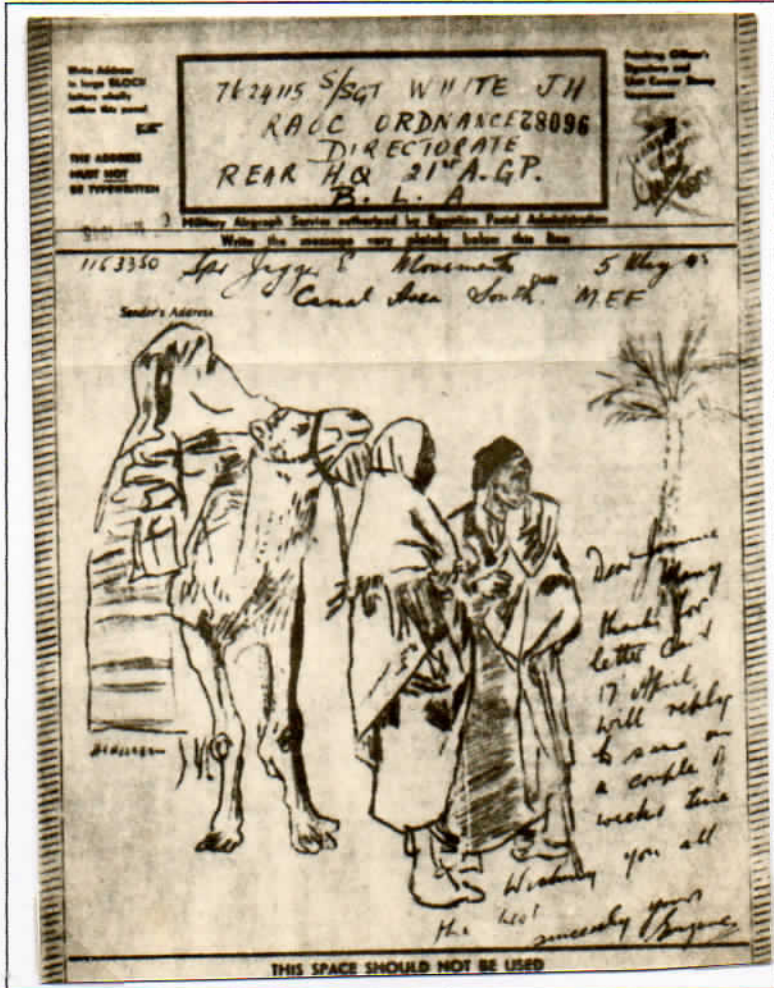 Write Address
in large BLOCK
letters wholly
within this panel
THE ADDRESS
MUST NOT
BE TYPEWRITTEN
7624115 S/SGT WHITE J H
RAOC ORDNANCE 28096
DIRECTORATE
REAR HQ 21ST A. GP.
B. L. A
Military Airgraph Service authorized by Egyptian Postal Administration
Write the message very plainly below this line
1163350 Spr Jagger E Movements 5 May
Canal Area South. M.E.F
Sender's Address
Dear
Many
thanks for
letter
17 April
will reply
to same in
a couple of
weeks time
Wishing you all
the best
sincerely yours
Eugene
THIS SPACE SHOULD NOT BE USED